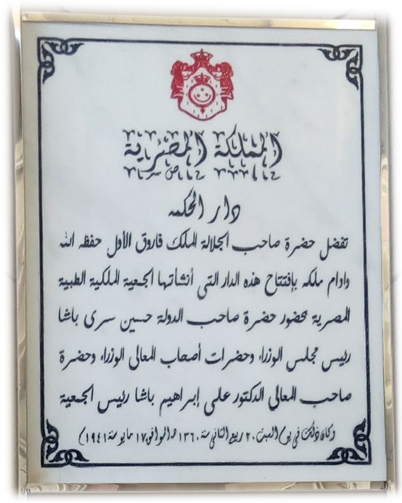 المملكة المصرية
دار الحكمه
تفضل حضرة صاحب الجلالة الملك فاروق الأول حفظه الله
وادام ملكه بإفتتاح هذه الدار التى أنشأتها الجمعية الملكية الطبية
المصرية بحضور حضرة صاحب الدولة حسين سرى باشا
رئيس مجلس الوزراء وحضرات أصحاب المعالى الوزراء وحضرة
صاحب المعالى الدكتور على إبراهيم باشا رئيس الجمعية
وكان ذلك فى يوم السبت ٢٠ ربيع الثانى سنة ١٣٦٠ هـ الموافق ١٧ مايو سنة ١٩٤١)